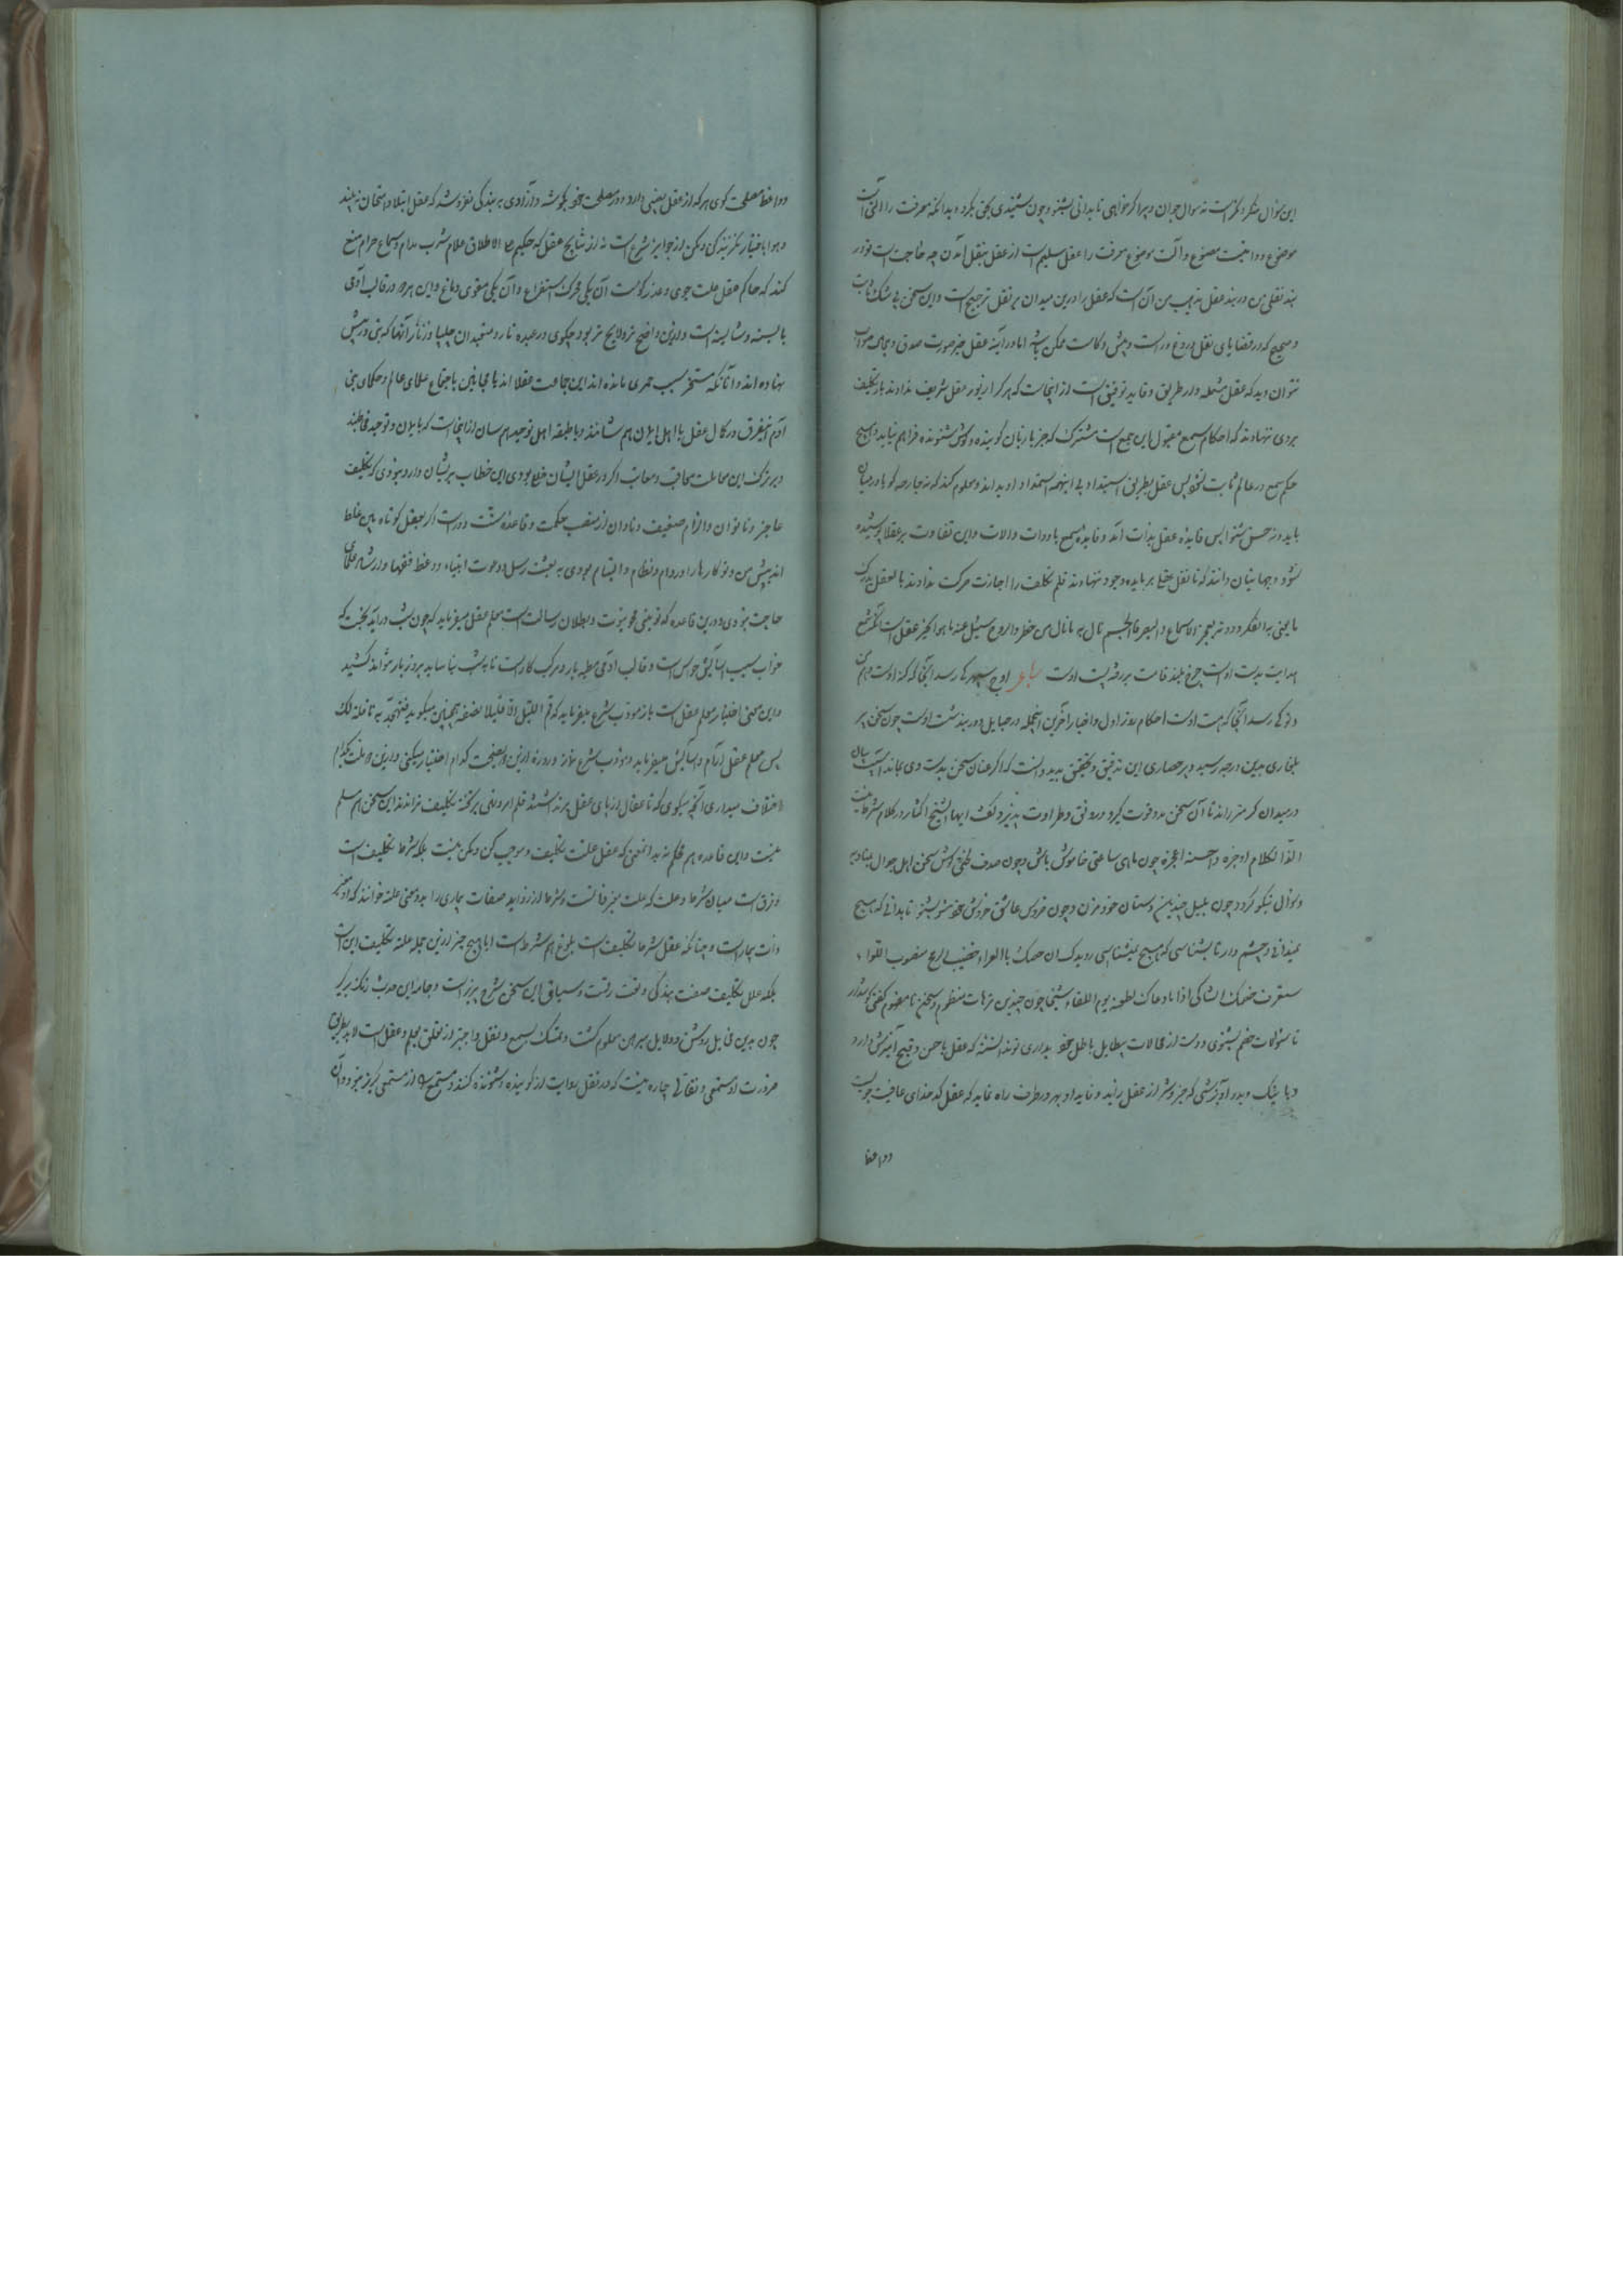 این سؤال منکر و مکر است نه سوال جوان و پیر اگر خواهی تا بدانی بشنو و چون بشنیدی بحق بگرو و بدانکه معرفت را آلتی است
موضوع و دوا نیست مصنوع و آلت موضوع معرفت را عقل سلیم است از عقل بنقل آمدن چه حاجت است تو در
بند نقلی من در بند عقل مذهب من آن است که عقل را درین میدان بر نقل ترجیح است و این سخن بی شک و ریب
و صحیح که در قضایای نقل دروغ و راست و بیش و کاست ممکن باشد اما در آینه عقل جز صورت صدق و جمال صواب
نتوان دید که عقل مشعله دار طریق و قاید توفیق است از اینجاست که هر کرا زیور عقل شریف ندادند بار تکلیف
بروی ننهادند که احکام سمع مقبول این جمع است مشترک که جز با زبان گوینده و گوش شنونده فراهم نیاید و هیچ
حکم سمع در عالم ثابت نشود پس عقل بطریق استبداد بی اینهمه استمداد او بداند و معلوم کند که نه جارحه گویا در میان
باید و نه حس شنوا پس فایده عقل بذات آمد و فایده سمع بادوات و آلات و این تفاوت بر عقلا پوشیده
نشود و جهانیان دانند که تا نقل عقل بر مایده وجود ننهادند قلم تکلیف را اجازت حرکت ندادند بالعقل یدرک
ما یخفی به الفکر و دونه یعجز الاسماع و البصر فالجسم نال به ما نال من خطر و الروح سیئل عنه ما هو الخبر عقل است آنکه شمع
هدایت بدست اوست چرخ بلند قامت بر رفته پست اوست شاعر اوج سپهر کی رسد آنجا که کنه اوست وهم
و نوکی رسد آنجا که هست اوست احکام روز اول و اخبار آخرین اینجمله در حبایل و در بند شست اوست چون سخن پیر
بلغاری بدین درجه رسید و پیر حصاری این تدقیق و تحقیق بدید دانست که اگر عنان سخن بدست وی بماند اسب بیان
در میدان گرمتر راند تا آن سخن مدد قوت گیرد و رونق و طراوت پذیرد گفت ایها الشیخ اکثار در کلام شرط نیست
الذ الکلام اوجزه و احسنه اعجزه چون ماهی ساعتی خاموش باش و چون صدف لختی گوش سخن اهل جدال بنوادر
و لوالی نیکو گردد چون بلبل چندین دستان خود مزن و چون خروس عاشق خروش خود مشو بشنو تا بدانی که هیچ
نمیدانی و چشم دار تا بشناسی که هیچ نمیشناسی رویدک ان خصمک بالعراء خفیف الرمح منصوب القواء
ستعرف خصمک الشاکی اذا ما دعاک لطعنه یوم اللقاء شیخا چون چندین ترهات منظوم و سخن نامفهوم گفتی گوشدار
تا سئوالات خصم بشنوی و دست از محالات بیطایل باطل خود بداری تو ندانستهٔ که عقل با حسن و قبیح آمیزش دارد
و با نیک و بد در آویزشی که خیر و شر از عقل زاید و نماید او بهر دو طرف راه نماید که عقل کدخدای عافیت جویست
و واعظ
و واعظ مصلحت گوی هر که از عقل نصیبی دارد در مصلحت خود بکوشد و آزادی به بندگی نفروشد که عقل ابتلا و امتحان نپسندد
و هوا باختیار نگزیند بندگی و مکن از جوایز شرع است نه از نتایج عقل که حکیم علی الاطلاق غلام شرب مدام و سماع حرام منع
کند که حاکم عقل علت جوی و عذر گوست آن یکی محرک استفراغ و آن یکی مقوی دماغ و این هر دو در قالب آدمی
بایسته و شایسته است و ازین واضح تر و لایح تر بود چگوئی در عبده نار و متعبدان چلیپا و زنار آنها که بتی در پیش
نهاده اند و آنانکه مسخر سبب حمری مانده اند این جماعت عقلا اند یا مجانین باجماع علمای عالم و حکمای بنی
آدم این فرق در کمال عقل با اهل ایمان هم شانند و با طبقه اهل توحید هم سان از اینجاست که بایمان و توحید مخاطبند
و بر ترک این معاملت معاقب و معاتب اگر در عقل ایشان خللی بودی این خطاب بر ایشان دارد نبودی که تکلیف
عاجز و ناتوان و الزام ضعیف و نادان از منصب حکمت و قاعده شفقت دور است اگر بعقل کوتاه بین غلط
اندیش من و تو کارها را دوام و نظام و التیام بودی به بعثت رسل و دعوت انبیاء و وعظ فقها و ارشاد علمای
حاجت نبودی و درین قاعده که تو بنی محو نبوت و بطلان رسالت است معلم عقل میفرماید که چون شب درآید بخسب که
خواب سبب آسایش حواس است و قالب آدمی مطیه بار و مرکب کار است تا بشب نیاساید بروز بار نتواند کشید
و این معنی اختیار معلم عقل است باز مؤدب شرع میفرماید که قم اللیل الا قلیلا نصفه همچنین میگوید فتهجد به نافلة لک
پس معلم عقل آرام و آسایش میفرماید و مؤدب شرع نماز و روزه ازین دو نصیحت کدام اختیار میکنی و ازین دو ملت بکدام
اختلاف میداری آنچه میگوی که تا عقال از پای عقل برنداشتند قلم امر و نهی بر تخته تکلیف نراندند این سخن هم مسلم
نیست و این قاعده هم محکم نه بدانمعنی که عقل علت تکلیف و موجب کن و مکن نیست بلکه شرط تکلیف است
و فرق است میان شرط و علت که علت مغیر ذاتست و شرط از زواید صفات بیماری را بدو معنی علت خوانند که او مغیر
ذات بیمار است و چنانکه عقل شرط تکلیف است بلوغ هم شرط است اما هیچ چیز ازین جمله علت تکلیف این است
بلکه علل تکلیف صفت بندگی و نعت رقیت و سیاق این سخن شرح برتر است و جامه این حدیث رنگ بر یکی
چون بدین مخایل روشن و دلایل مبرهن معلوم گشت و تمسک بسمع و نقل واجبتر از تعلق بعلم و عقل است لابد بطریق
ضرورت از مستمعی و نقالی چاره نیست که در نقل روایت از گوینده و شنونده کنند و مستمع را از مستمعی گریز نبود و آن